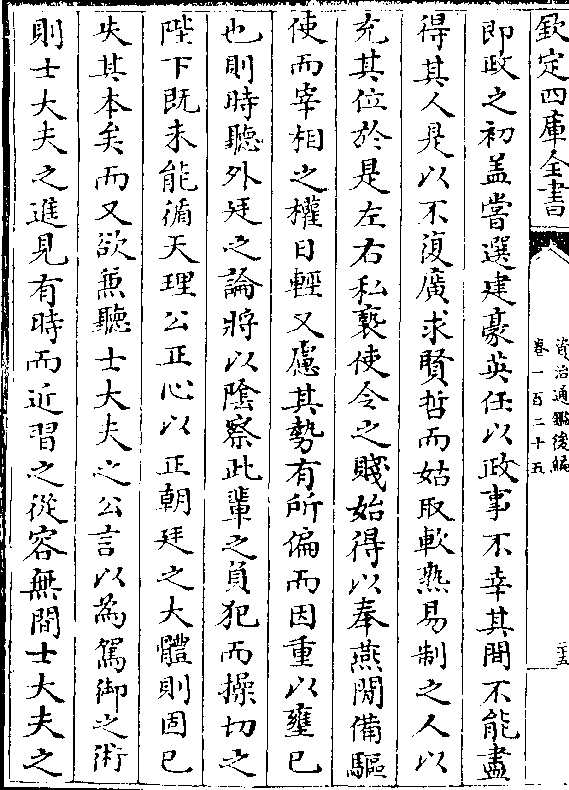 欽定四庫全書
資治通鑑後編
卷一百二十五
二十五
即政之初盖嘗選建豪英任以政事不幸其間不能盡
得其人是以不復廣求賢哲而姑取軟熟易制之人以
充其位於是左右私褻使令之賤始得以奉燕閒備驅
使而宰相之權日輕又慮其勢有所偏而因重以壅已
也則時聽外廷之論將以陰察此輩之負犯而操切之
陛下既未能循天理公正心以正朝廷之大體則固已
失其本矣而又欲兼聽士大夫之公言以為駕御之術
則士大夫之進見有時而近習之從容無間士大夫之